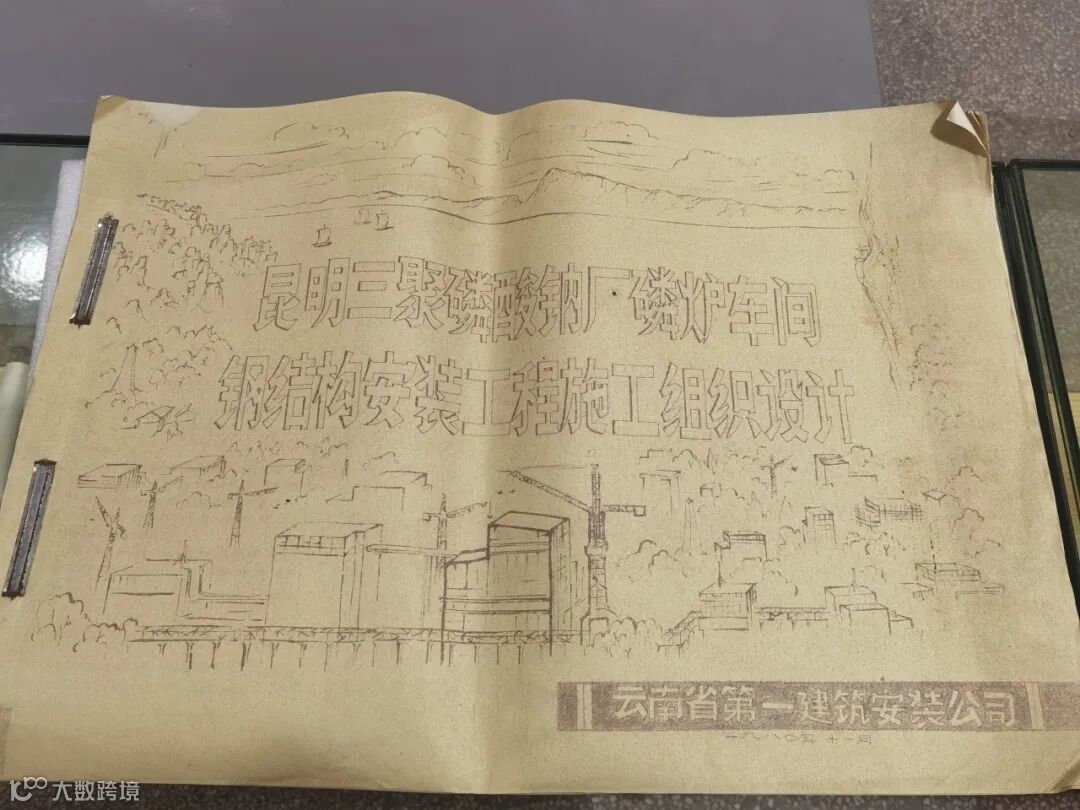 昆明三聚磷酸钠厂磷炉车间
钢结构安装工程施工组织设计
云南省第一建筑安装公司
一九八〇年十一月
大数跨境